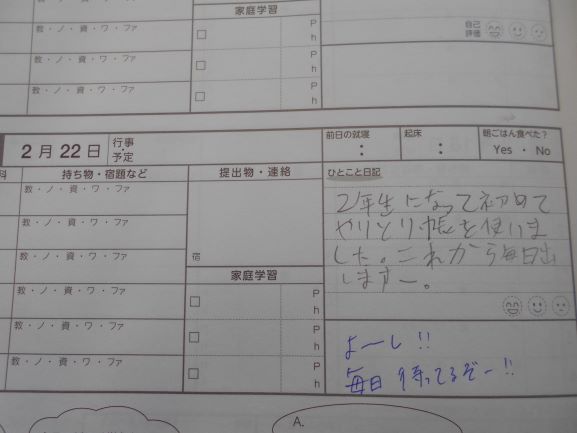 家庭学習
教・ノ・資・ワ・ファ
P
h
教・ノ・資・ワ・ファ
P
h
教・ノ・資・ワ・ファ
P
h
自己
評価
2月22日
行事
・
予定
前日の就寝
:
起床
:
朝ごはん食べた?
Yes ・ No
科
持ち物・宿題など
提出物・連絡
ひとこと日記
教・ノ・資・ワ・ファ
教・ノ・資・ワ・ファ
教・ノ・資・ワ・ファ
宿
2年生になって初めて
やりとり帳を使いま
した。これから毎日出
しますー。
家庭学習
教・ノ・資・ワ・ファ
P
h
教・ノ・資・ワ・ファ
P
h
教・ノ・資・ワ・ファ
P
h
よーし!!
毎日待ってるぞー!!
A.